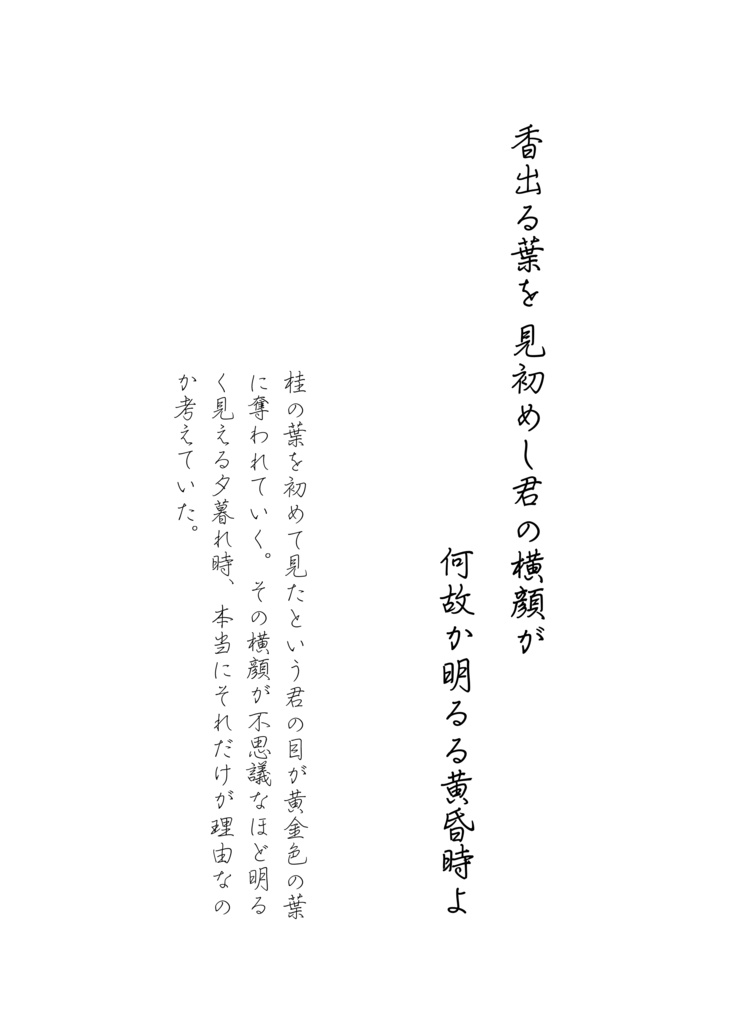 香出る葉を 見初めし君の横顔が
何故か明るる黄昏時よ
桂の葉を初めて見たという君の目が黄金色の葉
に奪われていく。その横顔が不思議なほど明る
く見える夕暮れ時、本当にそれだけが理由なの
か考えていた。